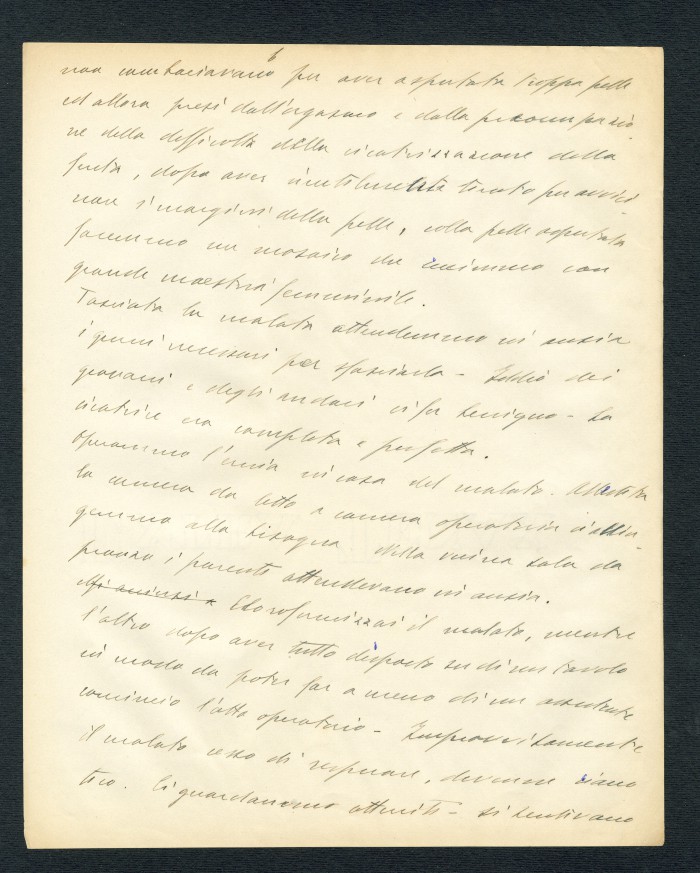 non combaciavano per aver asportata troppa pelle
ed allora presi dall'orgasmo e dalla preoccupazio
ne della difficoltà della cicatrizzazione della
ferita, dopo aver inutilmente tirato per avvici
nare i margini della pelle, colla pelle asportata
facemmo un mosaico che cucimmo con
grande maestria femminile.
Fasciata la malata attendemmo in ansia
i giorni necessari per sfasciarla - Iddio dei
giovani e degli audaci ci fu benigno - La
cicatrice era completa e perfetta.
Operammo l'ernia in casa del malato. Adattata
la camera da letto a camera operatoria ci
gemmo alla bisogna nella vicina sala da
pranzo i parenti attendevano in ansia.
Cloroformizzai il malato, mentre
l'altro dopo aver tutto disposto su di un tavolo
in modo da poter far a meno di un assistente
cominciò l'atto operatorio - Improvvisamente
il malato cessò di respirare, divenne ciano
tico. Ci guardammo atterriti - si sentivano